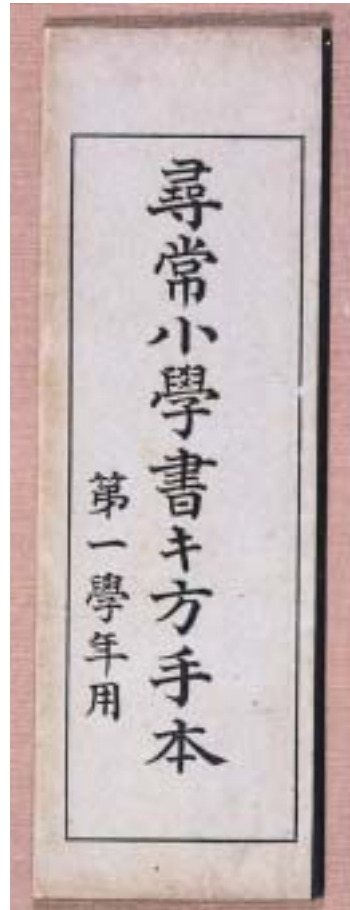 尋常小學書キ方手本
第一學年用